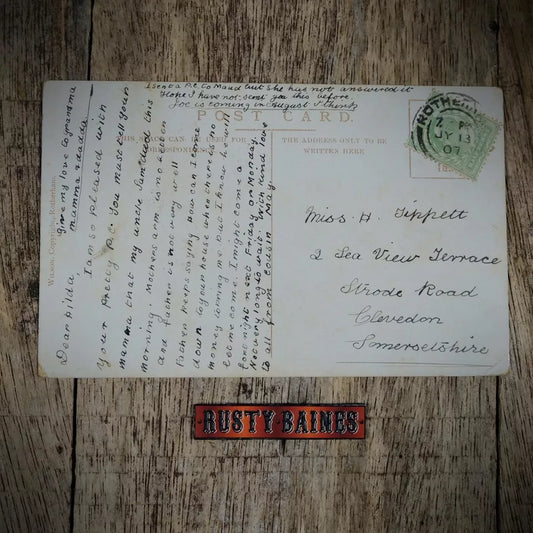 I sent a P.C. to Maud but she has not answered it
Hope I have not send you this before
Joe is coming in August I think
POST CARD.
THE ADDRESS ONLY TO BE
WRITTEN HERE.
ROTHERHAM
JY 13
07
Miss H. Tippett
2 Sea View Terrace
Strode Road
Clevedon
Somersetshire
Wilson, Copyright, Rotherham.
give my love to gramma
mamma & dadda
Dear Hilda,
I am so pleased with
your pretty P.C. You must tell your
mamma that my uncle Sam died this
morning. Mothers arm is no better
and father is not very well
Father keeps saying how can I come
down to your house when there is no
money coming me but I know he will
let me come. I might come a
fortnight next Friday or Monday
Not very long to wait. With kind love
to all from cousin May
RUSTY BAINES